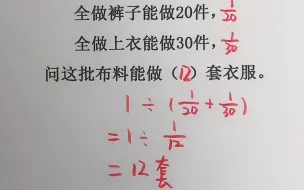 全做裤子能做20件，1/20
全做上衣能做30件，1/30
问这批布料能做（12）套衣服。
1÷（1/20+1/30）
=1÷1/12
=12套